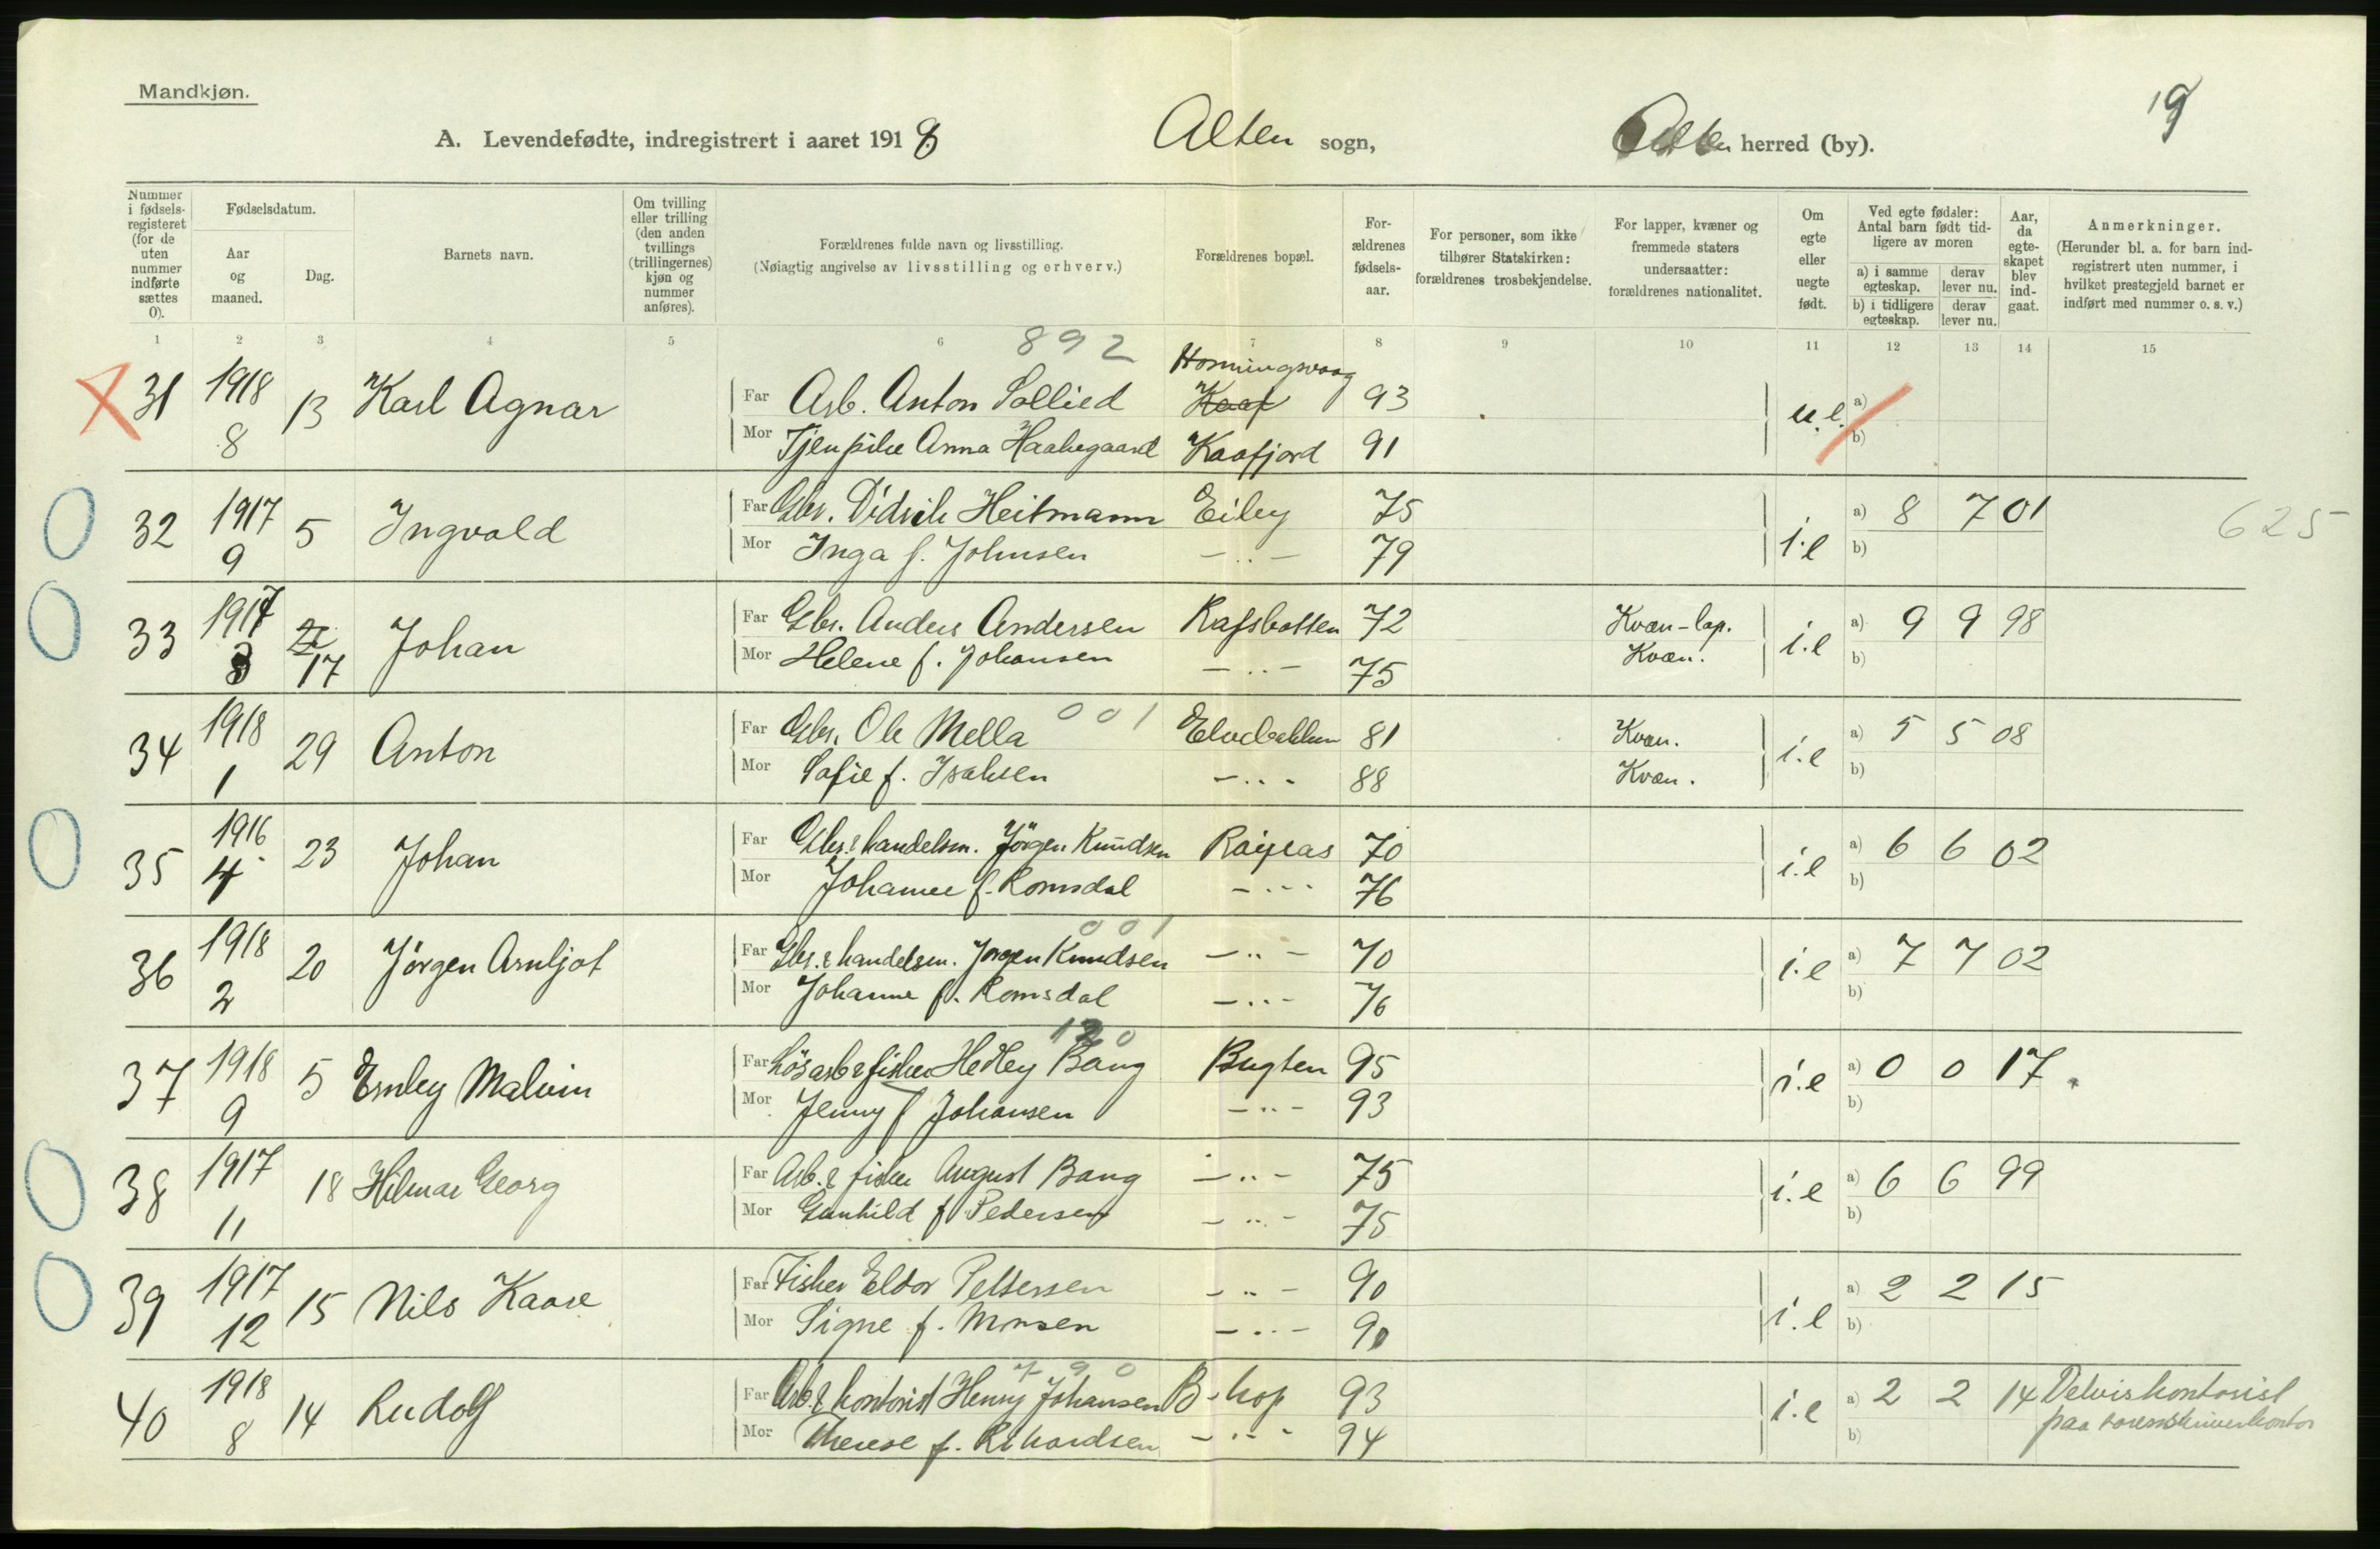 Mandkjøn.
19
A. Levendefødte, indregistrert i aaret 1918. Alten sogn, Alten herred (by).
Nummer i fødselsregisteret (for de uten nummer indførte sættes 0).
Fødselsdatum.
Aar og maaned.
Dag.
Barnets navn.
Om tvilling eller trilling (den anden tvillings (trillingernes) kjøn og nummer anføres).
Forældrenes fulde navn og livsstilling.
(Nøiagtig angivelse av livsstilling og erhverv.)
Forældrenes bopæl.
For-ældrenes fødsels-aar.
For personer, som ikke tilhører Statskirken: forældrenes trosbekjendelse.
For lapper, kvæner og fremmede staters undersaatter: forældrenes nationalitet.
Om egte eller uegte født.
Ved egte fødsler: Antal barn født tidligere av moren
a) i samme egteskap. derav lever nu.
b) i tidligere egteskap. derav lever nu.
Aar, da egteskapet blev indgaat.
Anmerkninger.
(Herunder bl. a. for barn indregistrert uten nummer, i hvilket prestegjeld barnet er indført med nummer o. s. v.)
1 2 3 4 5 6 7 8 9 10 11 12 13 14 15
892
Honningsvaag
31 1918 8 13 Karl Agnar Far Arb. Anton Sollied Kaaf 93 u.e. a)
Mor Tjenpike Anna Haakegaard Kaafjord 91 b)
32 1917 9 5 Ingvald Far Gbr. Didrik Heitmann Eiby 75 i.e a) 8 7 01 625
Mor Inga f. Johnsen - .. - 79 b)
33 1917 3 17 Johan Far Gbr. Anders Andersen Rafsbotten 72 Kvæn-lap. i.e a) 9 9 98
Mor Helene f. Johansen - .. - 75 Kvæn. b)
34 1918 1 29 Anton Far Gbr. Ole Mella 001 Elvebakken 81 Kvæn. i.e a) 5 5 08
Mor Sofie f. Isaksen - .. - 88 Kvæn. b)
35 1916 4 23 Johan Far Gbr. & handelsm. Jörgen Knudsen Raipas 70 i.e a) 6 6 02
Mor Johanne f. Romsdal - .. - 76 b)
001
36 1918 2 20 Jörgen Arnljot Far Gbr. & handelsm. Jörgen Knudsen - .. - 70 i.e a) 7 7 02
Mor Johanne f. Romsdal - .. - 76 b)
37 1918 9 5 Ernley Malvin Far Lösarb & fisker Hedley Bang Bugten 95 i.e a) 0 0 17
Mor Jenny f Johansen - .. - 93 b)
38 1917 11 18 Hilmar Georg Far Arb. & fisker August Bang - .. - 75 i.e a) 6 6 99
Mor Gunhild f Pedersen - .. - 75 b)
39 1917 12 15 Nils Kaare Far Fisker Eldor Pettersen - .. - 90 i.e a) 2 2 15
Mor Signe f. Monsen - .. - 90 b)
790
40 1918 8 14 Rudolf Far Arb. & kontorist Henry Johansen B-kop 93 i.e a) 2 2 14 Delvis kontorist
Mor Therese f. Rikardsen - .. - 94 b) paa sorenskriverkontor